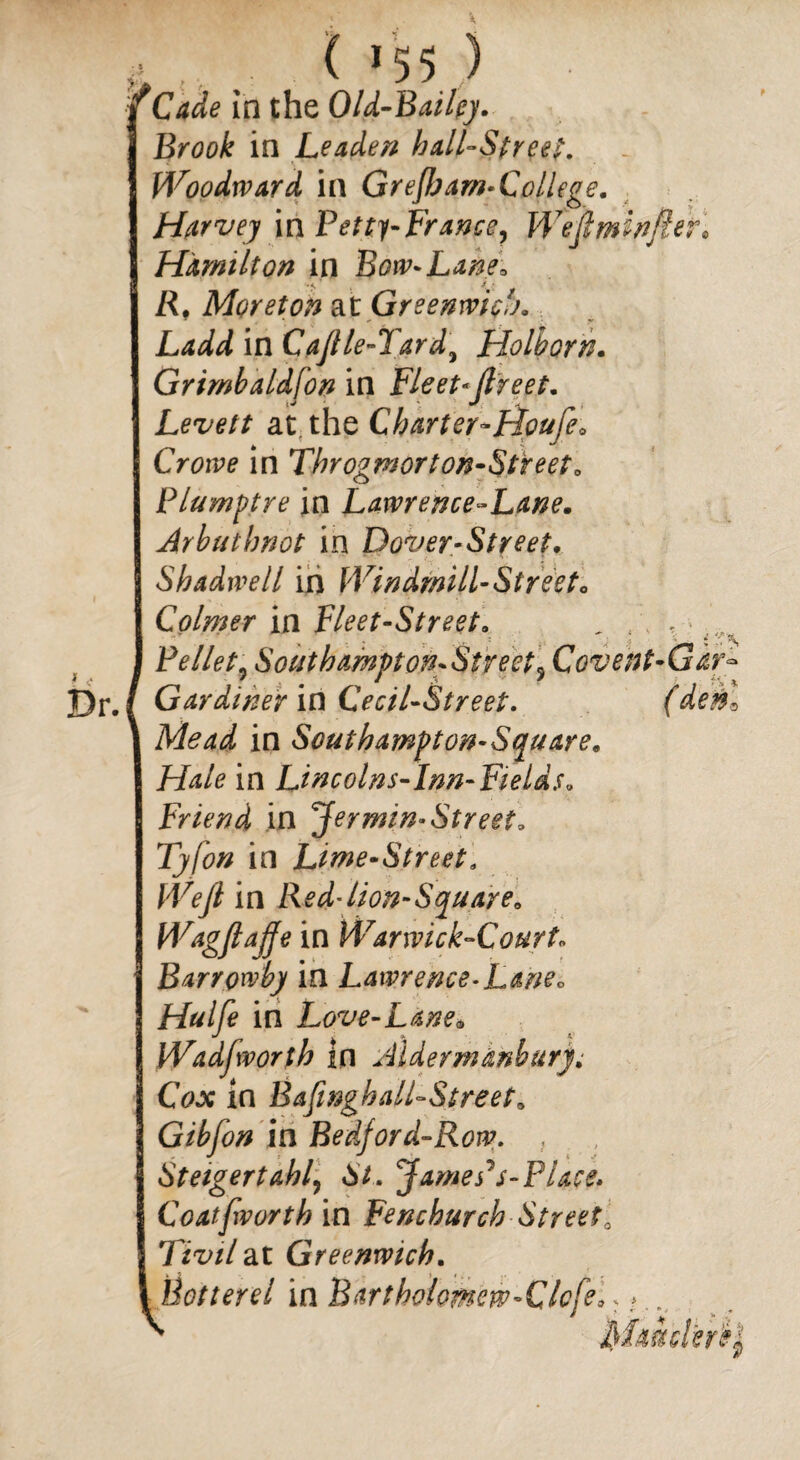 ( 155 )
Cade in the Old-Bailey.
Brook in Leaden hall-Street.
Woodward in Greſham-College.
Harvey in Petty-France, Weſtminſter.
Hamilton in Bow-Lane.
R. Moreton at Greenwich.
Ladd in Caſtle-Yard, Holborn.
Grimbaldſon in Fleet-ſtreet.
Levett at the Charter-Houſe.
Crowe in Throgmorton-Street.
Plumptre in Lawrence-Lane.
Arbuthnot in Dover-Street.
Shadwell in Windmill-Street.
Colmer in Fleet-Street.
Pellet, Southampton-Street, Covent-Gar-
Dr. Gardiner in Cecil-Street. (den.
Mead in Southampton-Square.
Hale in Lincolns-Inn-Fields.
Friend in Jermin-Street.
Tyſon in Lime-Street.
Weſt in Red-lion-Square.
Wagſtaffe in Warwick-Court.
Barrowby in Lawrence-Lane.
Hulſe in Love-Lane.
Wadſworth in Aldermanbury.
Cox in Baſinghall-Street.
Gibſon in Bedford-Row.
Steigertahl, St. James's-Place.
Coatſworth in Fenchurch Street.
Tivil at Greenwich.
Botterel in Bartholomew-Cloſe.
Manclere,